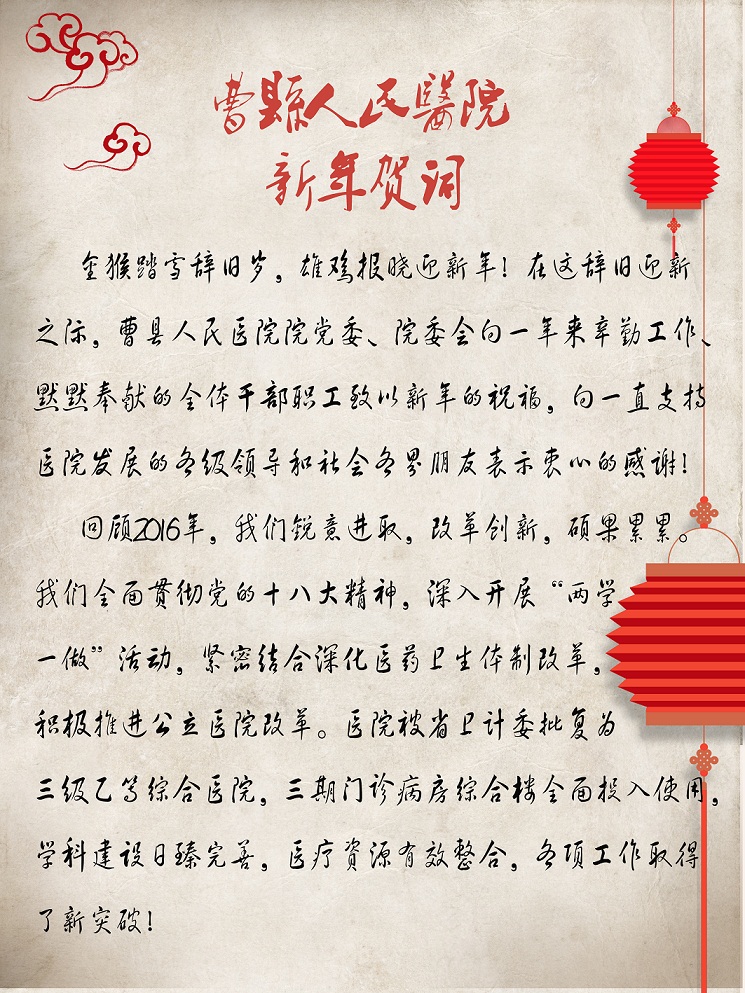 曹縣人民醫院
新年贺词
金猴踏雪辞旧岁，雄鸡报晓迎新年！在这辞旧迎新
之际，曹县人民医院院党委、院委会向一年来辛勤工作、
默默奉献的全体干部职工致以新年的祝福，向一直支持
医院发展的各级领导和社会各界朋友表示衷心的感谢！
回顾2016年，我们锐意进取，改革创新，硕果累累。
我们全面贯彻党的十八大精神，深入开展“两学
一做”活动，紧密结合深化医药卫生体制改革，
积极推进公立医院改革。医院被省卫计委批复为
三级乙等综合医院，三期门诊病房综合楼全面投入使用，
学科建设日臻完善，医疗资源有效整合，各项工作取得
了新突破！